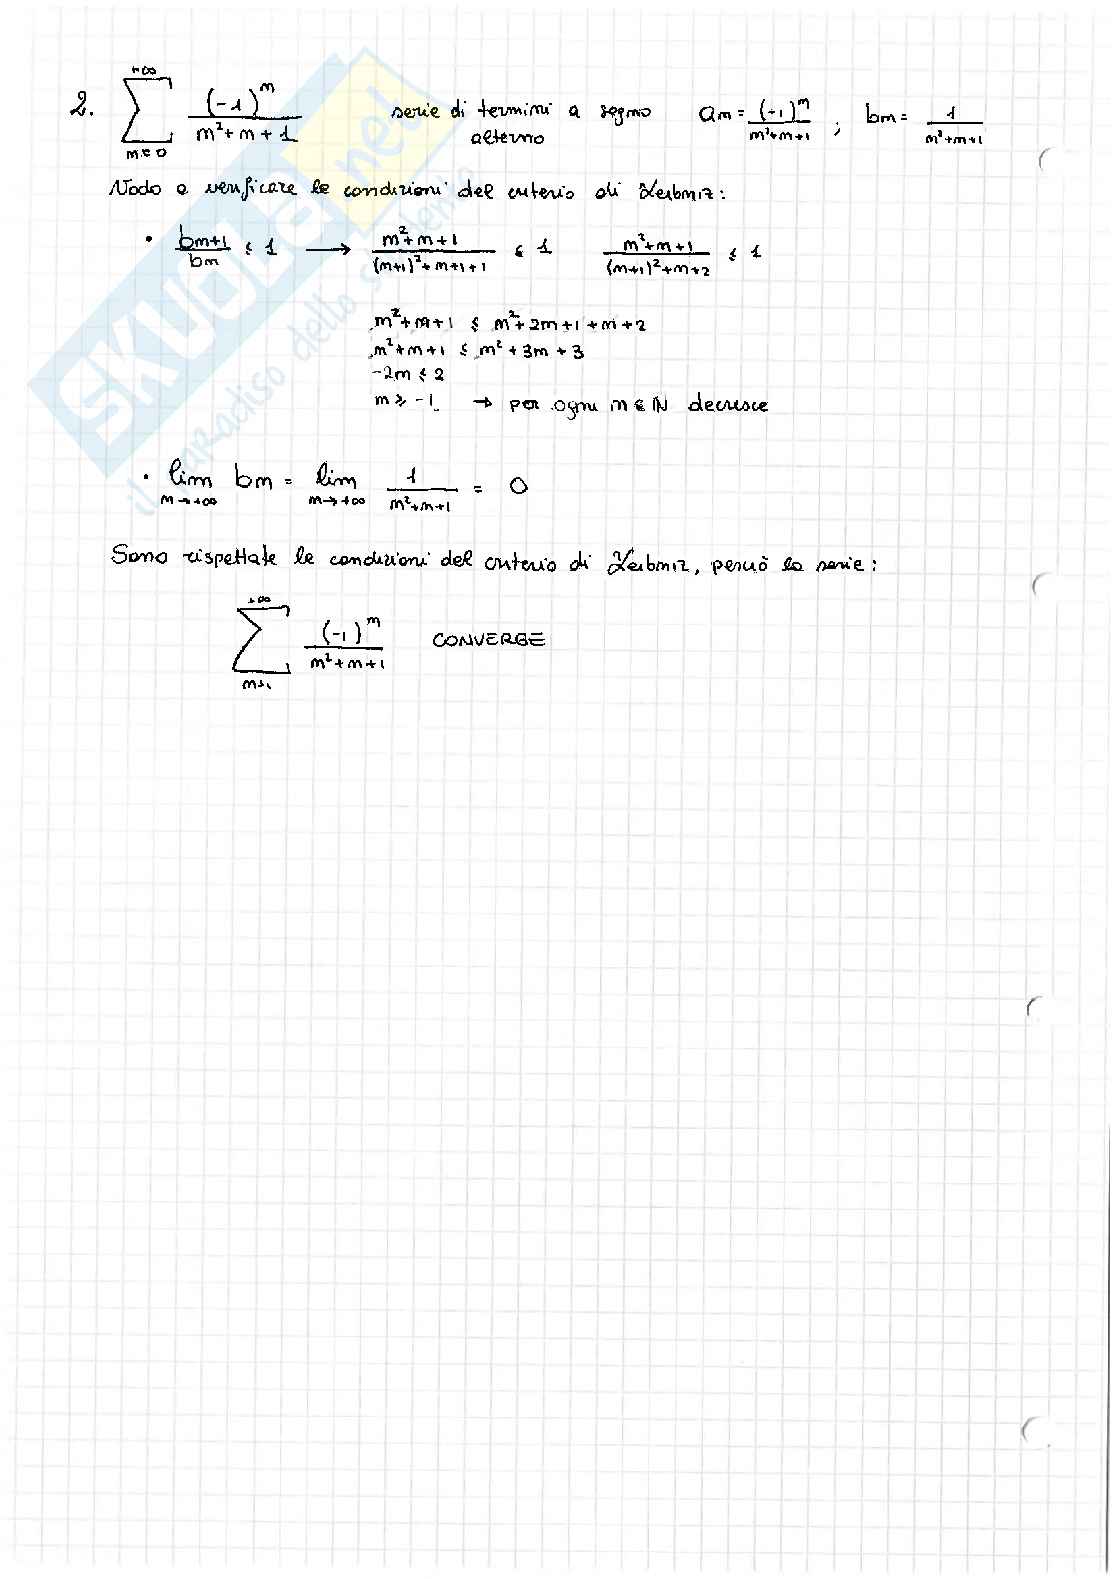 2. +∞ ∑ n=0 (-1)^n / (n²+n+1) serie di termini a segno alterno an = (-1)^n / (n²+n+1) ; bn = 1 / (n²+n+1)
Vado a verificare le condizioni del criterio di Leibniz:
• bn+1 / bn ≤ 1 → (n²+n+1) / ((n+1)²+n+1+1) ≤ 1 (n²+n+1) / ((n+1)²+n+2) ≤ 1
n²+n+1 ≤ n²+2n+1+n+2
n²+n+1 ≤ n²+3n+3
-2n ≤ 2
n ≥ -1 → per ogni n∈ℕ decresce
• lim n→+∞ bn = lim n→+∞ 1 / (n²+n+1) = 0
Sono rispettate le condizioni del criterio di Leibniz, perciò la serie:
+∞ ∑ (-1)^n / (n²+n+1) CONVERGE
SKUOLA.net
il paradiso dello studente